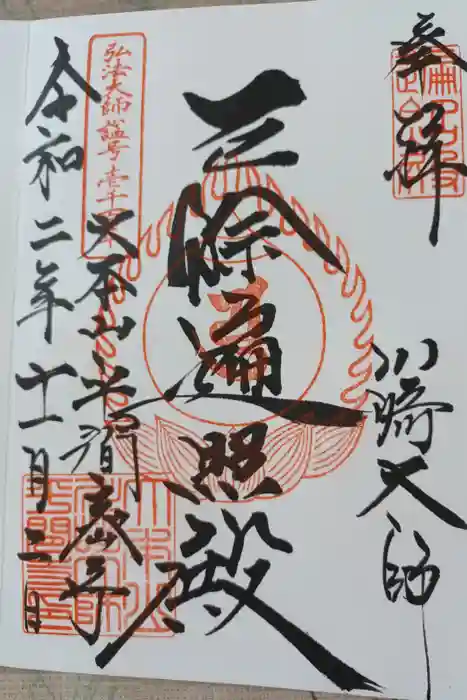 奉拝
川崎大師
厄除遍照殿
弘法大師諡号壱千
大本山平間密寺
令和二年十一月二日